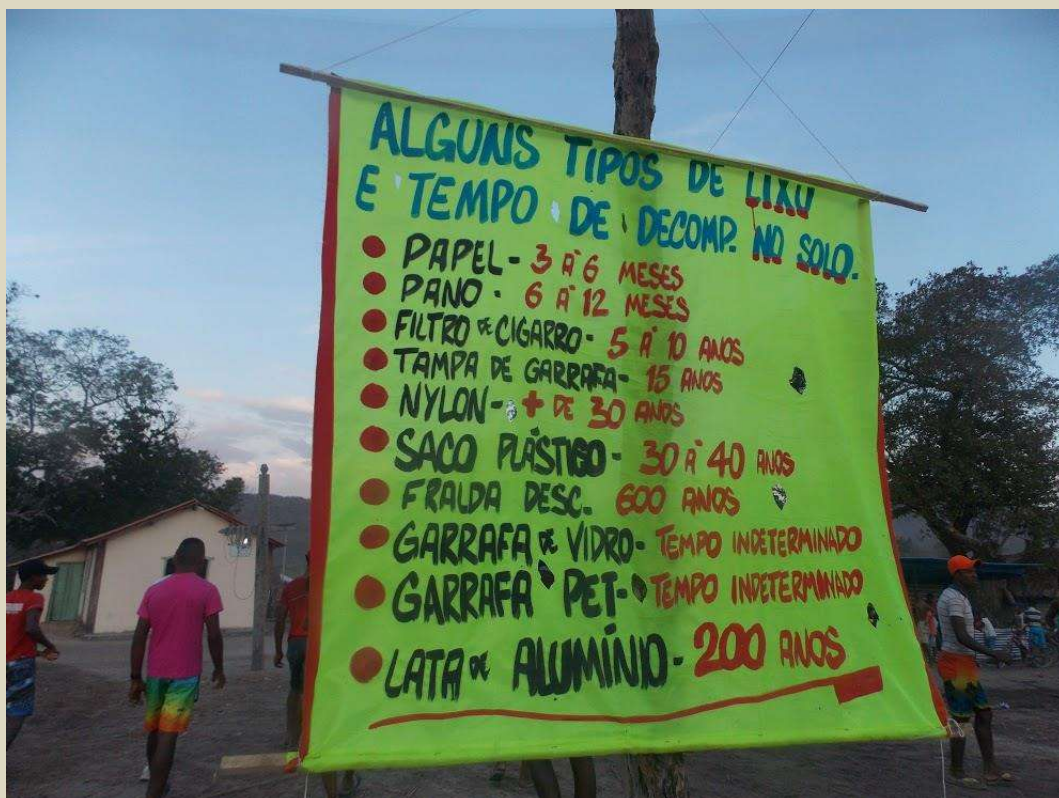 ALGUNS TIPOS DE LIXO
E TEMPO DE DECOMP. NO SOLO.
PAPEL - 3 À 6 MESES
PANO - 6 À 12 MESES
FILTRO DE CIGARRO - 5 À 10 ANOS
TAMPA DE GARRAFA - 15 ANOS
NYLON - + DE 30 ANOS
SACO PLÁSTICO - 30 À 40 ANOS
FRALDA DESC. 600 ANOS
GARRAFA DE VIDRO - TEMPO INDETERMINADO
GARRAFA PET - TEMPO INDETERMINADO
LATA DE ALUMÍNIO - 200 ANOS